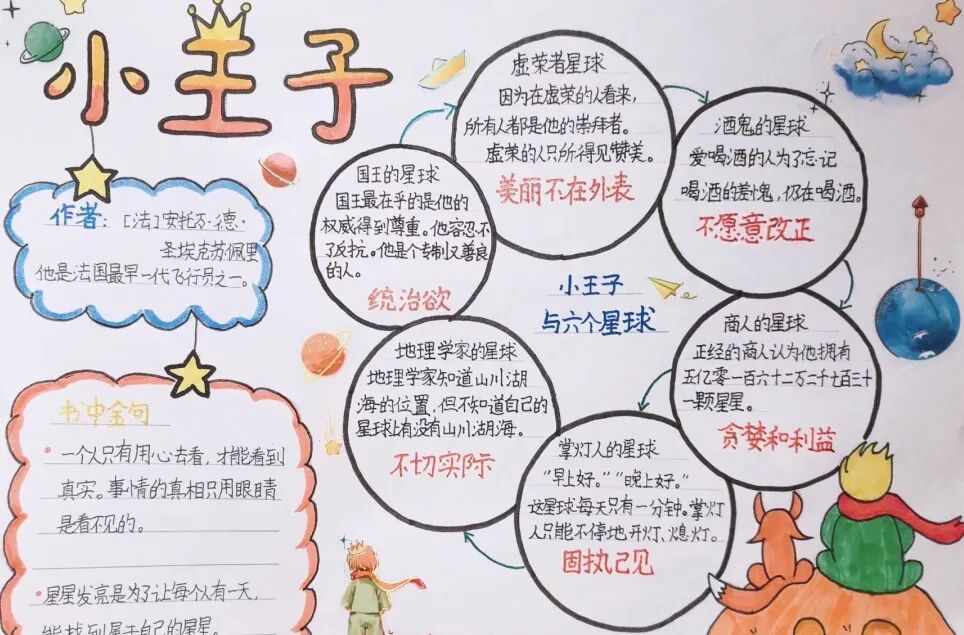 小王子
作者：[法]安托万·德·
圣埃克苏佩里
他是法国最早一代飞行员之一。
书中金句
一个人只有用心去看，才能看到
真实。事情的真相只用眼睛
是看不见的。
星星发亮是为了让每个人有一天，
能找到属于自己的星星。
小王子
与六个星球
国王的星球
国王最在乎的是他的
权威得到尊重。他容忍不
了反抗。他是个专制又善良
的人。
统治欲
虚荣者星球
因为在虚荣的人看来，
所有人都是他的崇拜者。
虚荣的人只所得见赞美。
美丽不在外表
酒鬼的星球
爱喝酒的人为了忘记
喝酒的羞愧，仍在喝酒。
不愿意改正
商人的星球
正经的商人认为他拥有
五亿零一百六十二万二千七百三十
一颗星星。
贪婪和利益
掌灯人的星球
“早上好。”“晚上好。”
这星球每天只有一分钟。掌灯
人只能不停地开灯、熄灯。
固执己见
地理学家的星球
地理学家知道山川湖
海的位置，但不知道自己的
星球上有没有山川湖海。
不切实际